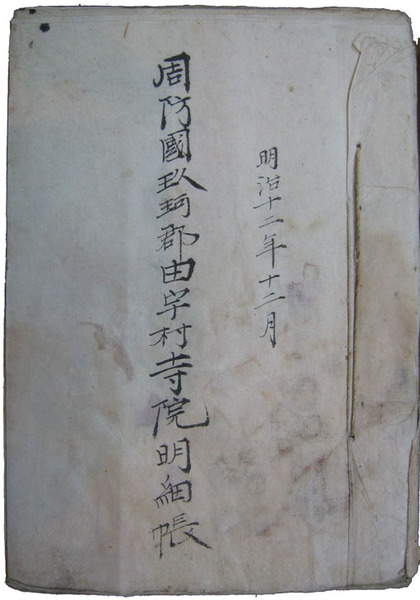 明治十二年十二月
周防國玖珂郡由宇村寺院明細帳